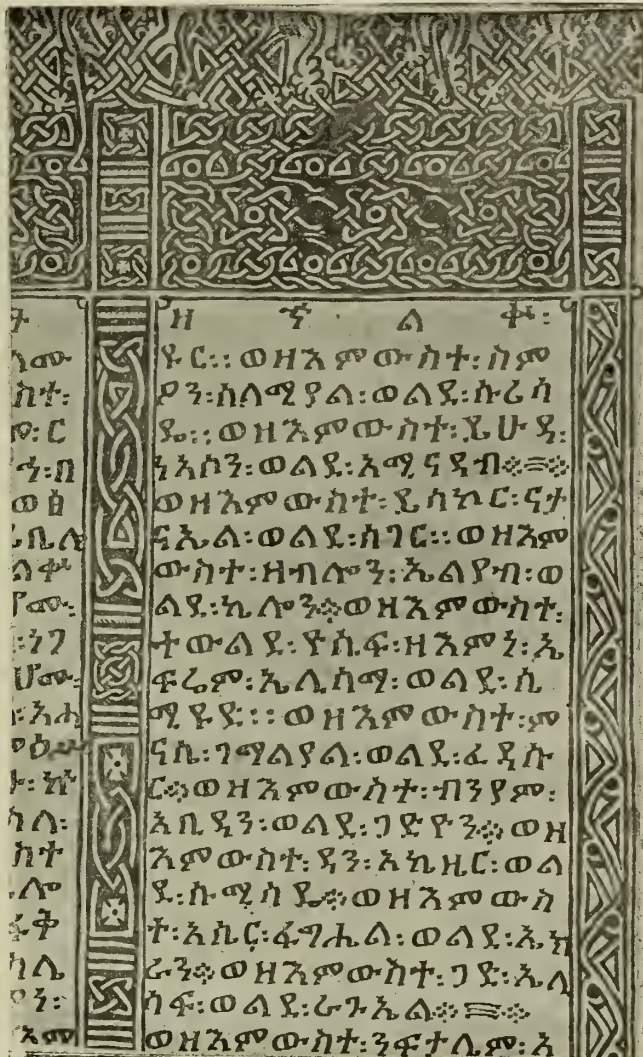 ዘ ኍ ል ቍ፡
ዩር፡፡ወዘእምውስተ፡ስም
ዖን፡ሰለሚያል፡ወልደ፡ሱሬሳ
ዴ፡፡ወዘእምውስተ፡ይሁዳ፡
ነአሶን፡ወልደ፡አሚናዳብ፨
ወዘእምውስተ፡ይሳኮር፡ናታ
ናኤል፡ወልደ፡ሰገር፡፡ወዘእም
ውስተ፡ዛብሎን፡ኤልያብ፡ወ
ልደ፡ኬሎን፨ወዘእምውስተ፡
ተውልደ፡ዮሴፍ፡ዘእምነ፡ኤ
ፍሬም፡ኤሊስማ፡ወልደ፡ሴ
ሚዩድ፡፡ወዘእምውስተ፡ም
ናሴ፡ገማልያል፡ወልደ፡ፈዳሱ
ር፨ወዘእምውስተ፡ብንያም፡
አቢዳን፡ወልደ፡ጋድዮን፨ወዘ
እምውስተ፡ዳን፡አኪዚር፡ወል
ደ፡ሱሚሳዴ፨ወዘእምውስ
ተ፡አሴር፡ፋግሔል፡ወልደ፡ኤክ
ራን፨ወዘእምውስተ፡ጋድ፡ኤለ
ሳፍ፡ወልደ፡ራጉኤል፨
ወዘእምውስተ፡ንፍታሌም፡አ